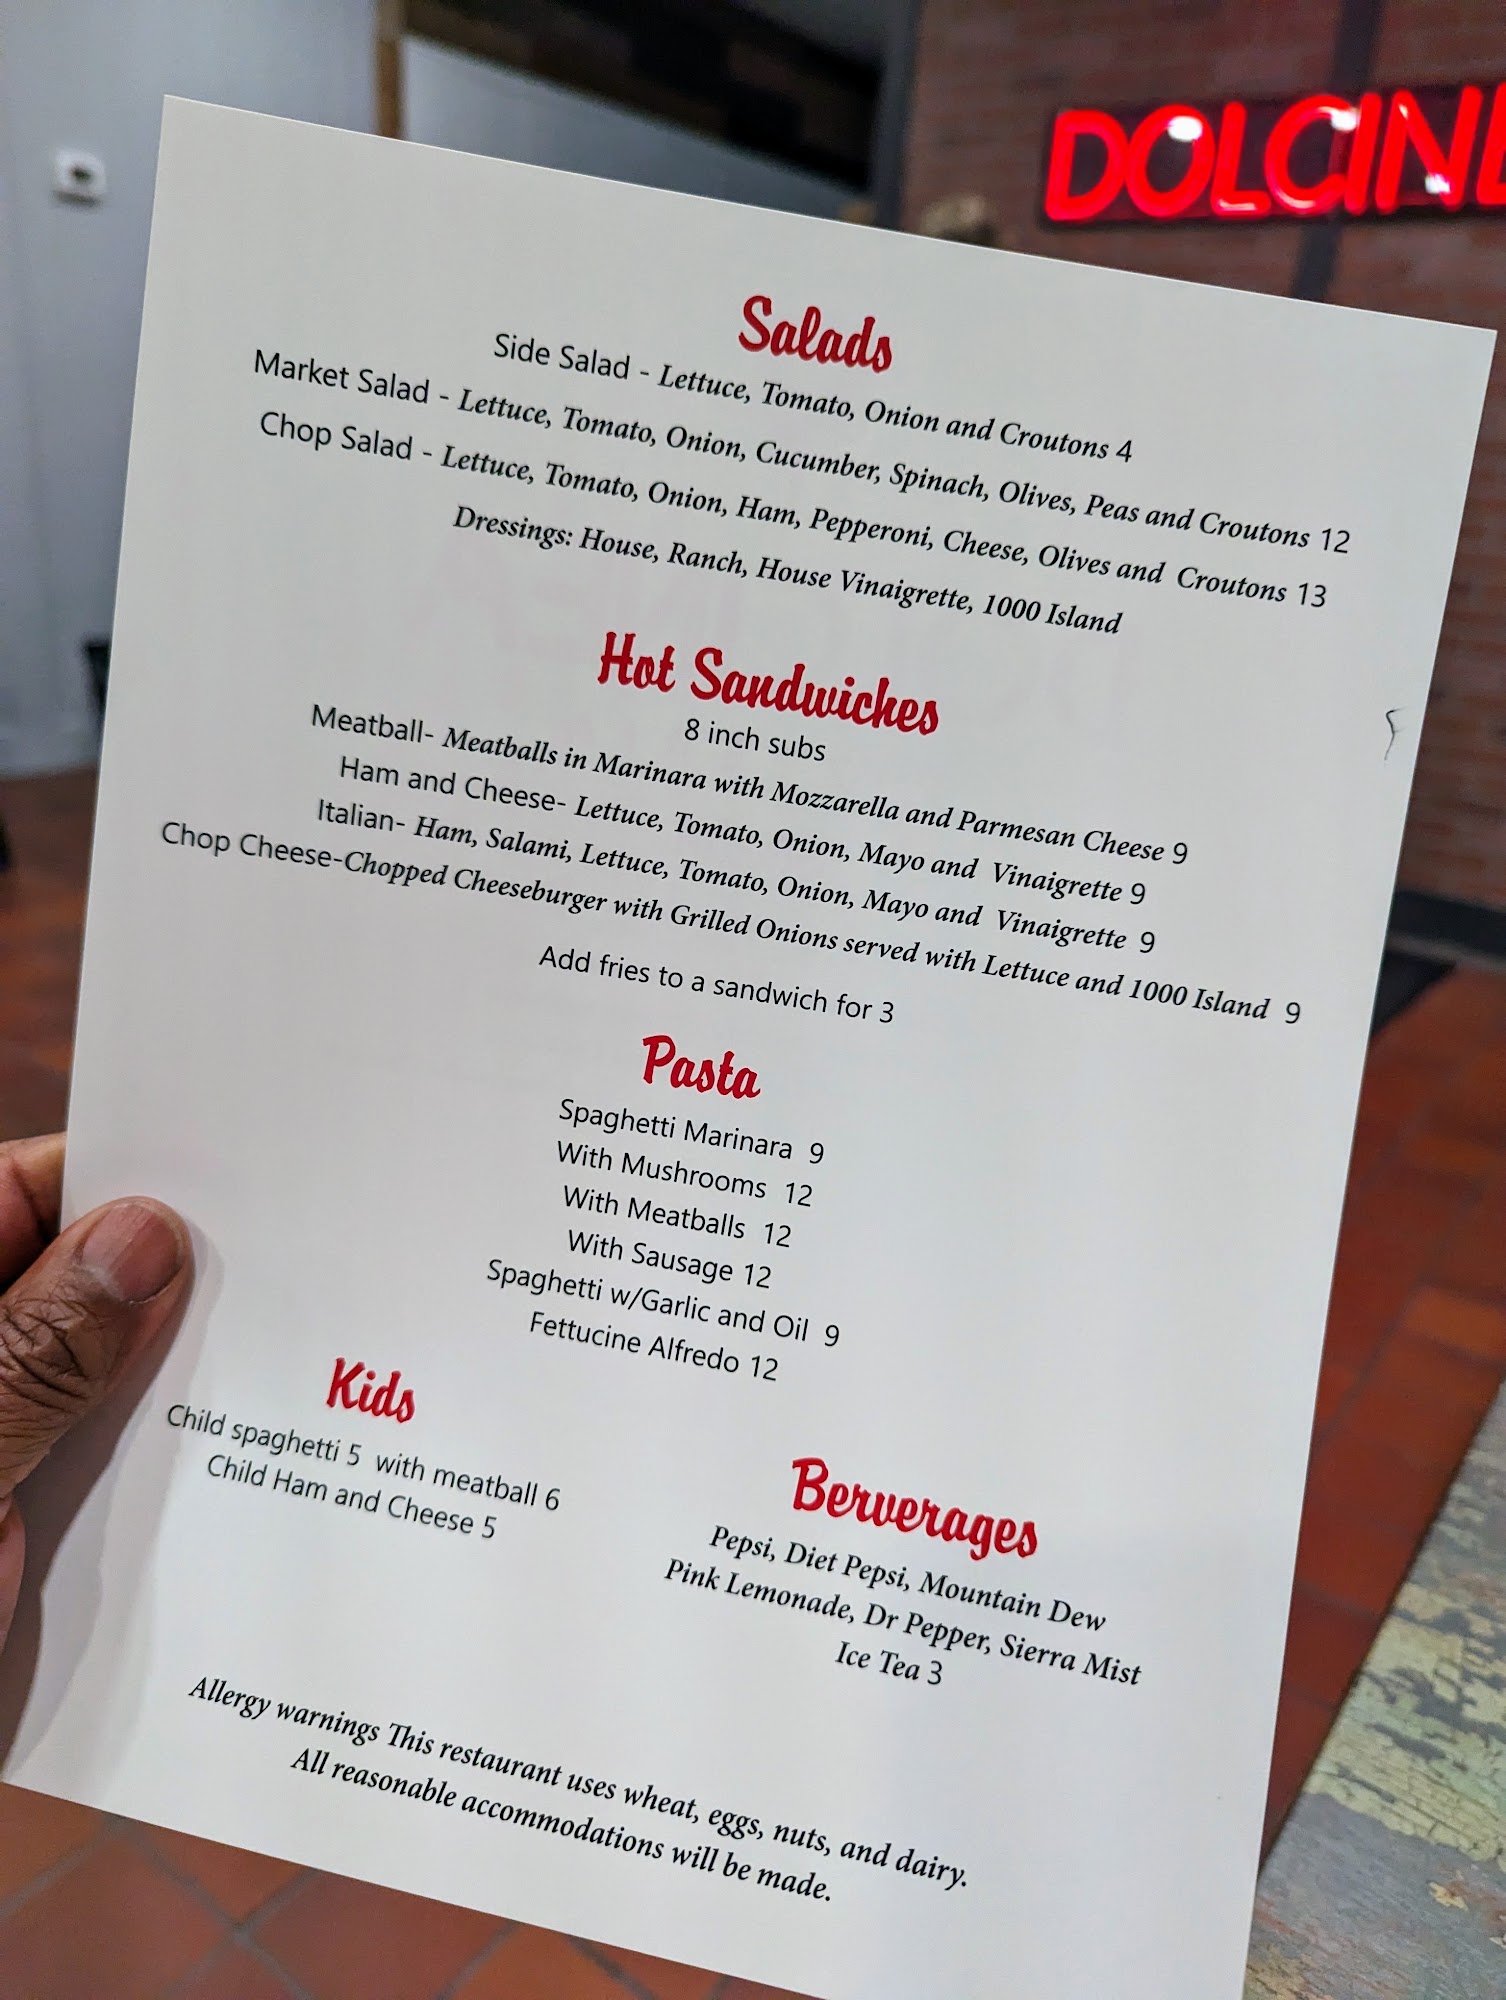 DOLCINE
Salads
Side Salad - Lettuce, Tomato, Onion and Croutons 4
Market Salad - Lettuce, Tomato, Onion, Cucumber, Spinach, Olives, Peas and Croutons 12
Chop Salad - Lettuce, Tomato, Onion, Ham, Pepperoni, Cheese, Olives and Croutons 13
Dressings: House, Ranch, House Vinaigrette, 1000 Island
Hot Sandwiches
8 inch subs
Meatball- Meatballs in Marinara with Mozzarella and Parmesan Cheese 9
Ham and Cheese- Lettuce, Tomato, Onion, Mayo and Vinaigrette 9
Italian- Ham, Salami, Lettuce, Tomato, Onion, Mayo and Vinaigrette 9
Chop Cheese-Chopped Cheeseburger with Grilled Onions served with Lettuce and 1000 Island 9
Add fries to a sandwich for 3
Pasta
Spaghetti Marinara 9
With Mushrooms 12
With Meatballs 12
With Sausage 12
Spaghetti w/Garlic and Oil 9
Fettucine Alfredo 12
Kids
Child spaghetti 5 with meatball 6
Child Ham and Cheese 5
Berverages
Pepsi, Diet Pepsi, Mountain Dew
Pink Lemonade, Dr Pepper, Sierra Mist
Ice Tea 3
Allergy warnings This restaurant uses wheat, eggs, nuts, and dairy.
All reasonable accommodations will be made.